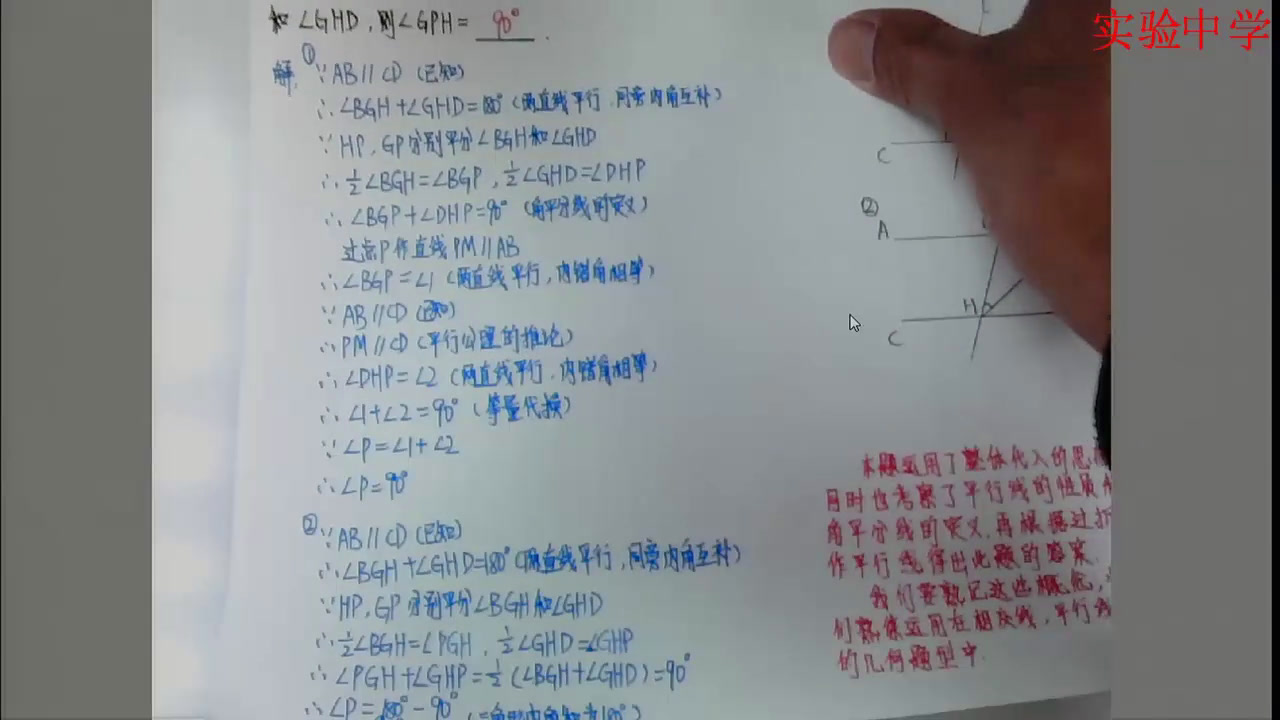 实验中学
和∠GHD,则∠GPH= 90°.
解: ①∵AB∥CD(已知)
∴∠BGH+∠GHD=180°(两直线平行,同旁内角互补)
∵HP,GP分别平分∠BGH和∠GHD
∴½∠BGH=∠BGP,½∠GHD=∠DHP
∴∠BGP+∠DHP=90°(角平分线的定义)
过点P作直线PM∥AB
∴∠BGP=∠1(两直线平行,内错角相等)
∵AB∥CD(已知)
∴PM∥CD(平行公理的推论)
∴∠DHP=∠2(两直线平行,内错角相等)
∴∠1+∠2=90°(等量代换)
∵∠P=∠1+∠2
∴∠P=90°
②∵AB∥CD(已知)
∴∠BGH+∠GHD=180°(两直线平行,同旁内角互补)
∵HP,GP分别平分∠BGH和∠GHD
∴½∠BGH=∠PGH,½∠GHD=∠GHP
∴∠PGH+∠GHP=½(∠BGH+∠GHD)=90°
∴∠P=180°-90°(三角形内角和为180°)
C
②
A
H
C
本题运用了整体代入的思
同时也考察了平行线的性质
角平分线的定义,再根据过
作平行线得出此题的答案.
我们要熟记这些概念,
们熟练运用在相交线,平行线
的几何题型中.